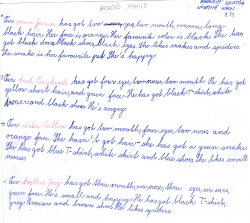 HORRIBLE FAMILY
Our mum Janice has got two eyes, two mouth, orange, long
black hair. Her face is orange. Her favourite color is black. She has
got black dress, black shoes, black eyes. She likes snakes and spiders
The snake is her favourite pet. She's happy.
Our dad has got four eyes, two noses, two mouth. He has got
yellow short hair, and green face. He has got black T-shirt, white
trousers and black shoes. He's angry.
Our sister has got two mouth, four eyes, two noses and
orange face. She hasn't got hair - she has got a green snakes
She has got blue T-shirt, white skirt and blue shoes. She likes small
Our brother has got three mouth, six noses, three eyes, six ears,
green face. He's small and happy. He has got black T-shirt,
grey trousers and brown shoes. He likes spiders